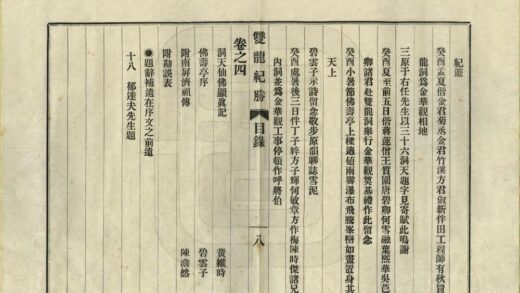 紀遊
癸酉孟夏偕金君菊丞金君竹溪方君俶新伴田工程師有秋冒
龍洞爲金華觀相地
三原于右任先生以三十六洞天題字見寄賦此鳴謝
癸酉夏至前五日偕蔣蓮僧王質園唐碧卿何雪融葉熙華吳芭
卿諸君赴雙龍洞舉行金華觀奠基禮作此留念
癸酉小暑節佛壽亭上樑適値雨霽瀑布飛騰峯巒如畫置身其
天上
碧雲子示詩留念敬步原韻聊誌雪泥
癸酉處暑後三日伴丁子粹方子輝何敏章方作梅陳時傑諸兄
內洞並爲金華觀工事停頓作呼將伯
雙龍紀勝 目錄 八
卷之四
洞天仙佛顯眞記 黃維時
佛壽亭序 碧雲子
附南屏濟祖傳 陳瀞然
附勘誤表
●題辭補遺在序文之前邊
十八 郁達夫先生題